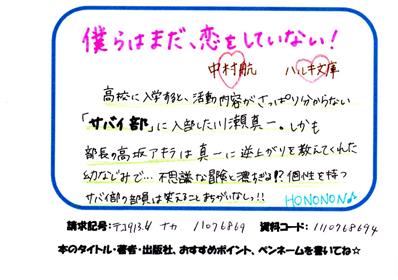 僕らはまだ、恋をしていない!
中村航 ハルキ文庫
高校に入学すると、活動内容がさっぱり分からない
「サバイ部」に入部した川瀬真一。しかも
部長の高坂アキラは真一に逆上がりを教えてくれた
幼なじみで…不思議な冒険と濃すぎる!?個性を持つ
サバイ部の部員は笑えることまちがいなしっ!!
HONONON♪
請求記号:テコ913.6 ナカ 11076869 資料コード:1110768694
本のタイトル・著者・出版社、おすすめポイント、ペンネームを書いてね☆